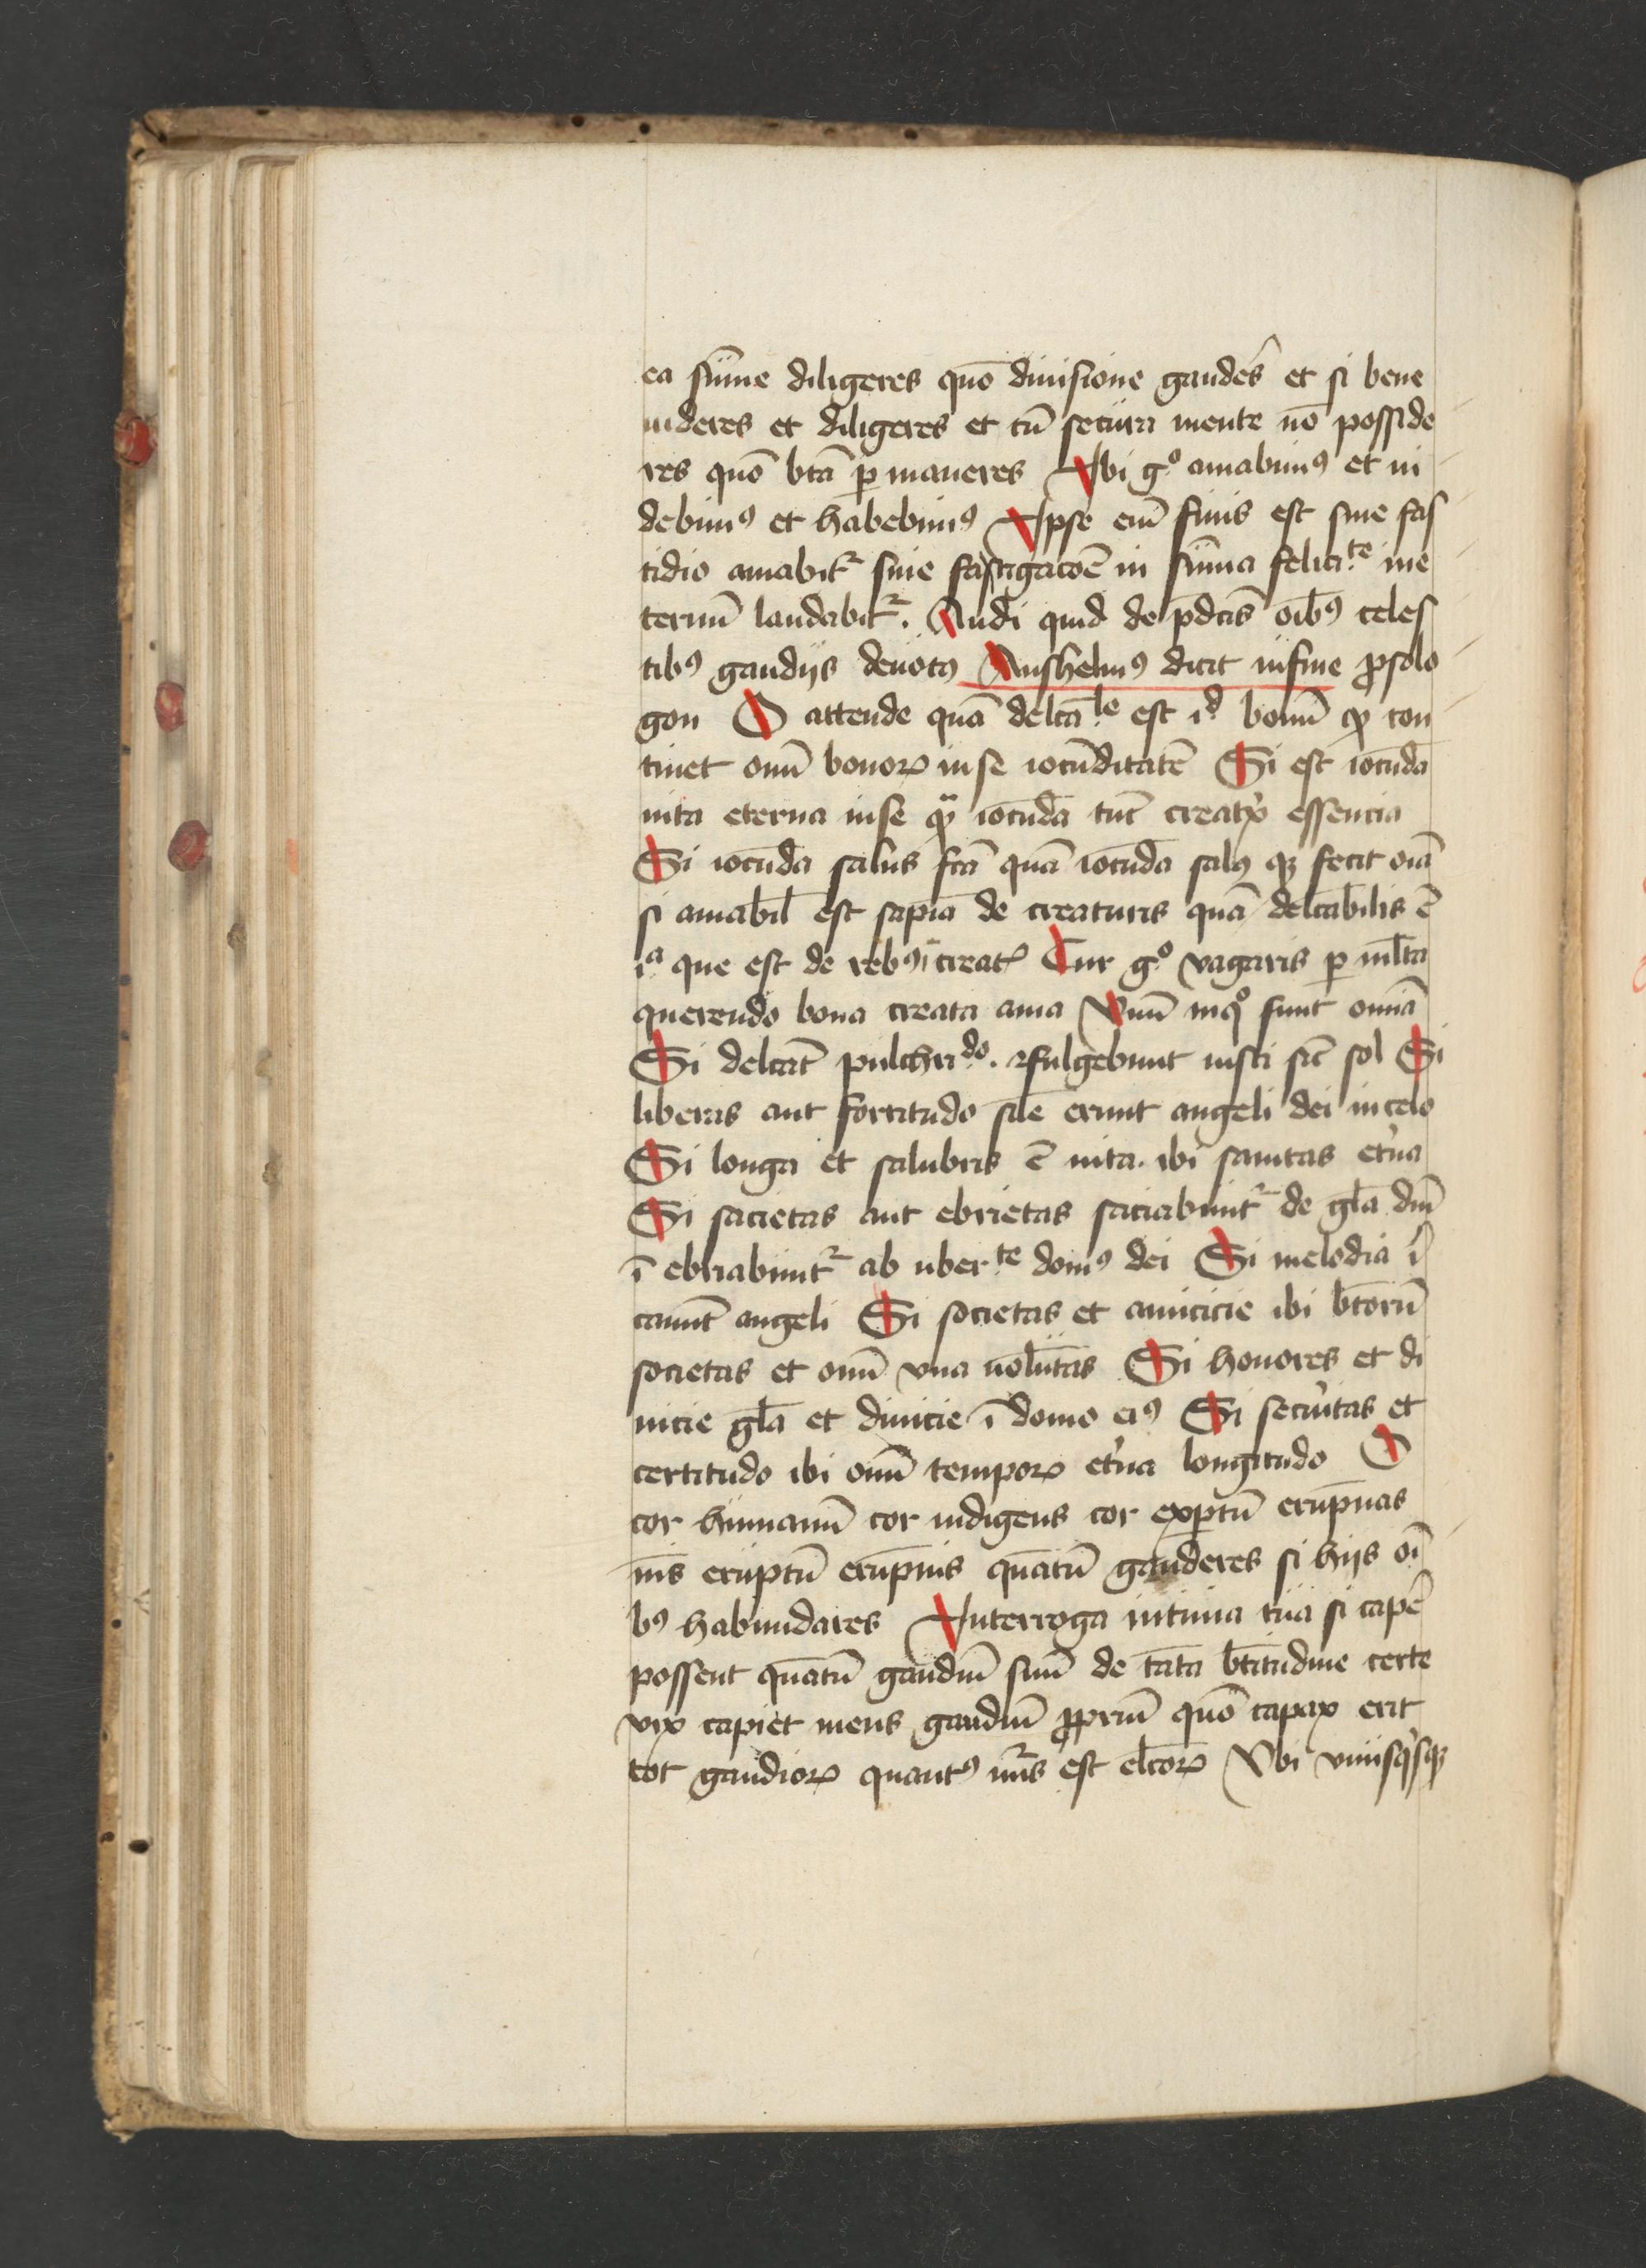 ea sūme diligeres quō diuisione gauderes et si bene
uideres et diligeres et tū secura mente nō posside
res quō btā ꝑmaneres Ibi gͦ amabimꝰ et ui
debimꝰ et habebimꝰ Ipse em̄ finis est sine fas
tidio amabitᷣ sine fatigacōe in sūma felicite ine
ternū laudabitᷣ. Audi quid de p̄dc̄is oībꝰ celes
tibꝰ gaudijs deuotꝰ Anshelmꝰ dicit infine ꝓsolo
gon O attende quā delcāle est id bonū qd con
tinet om̄ bonoꝝ inse iocūditatē Si est iocūda
uita eterna inse iocūda tūc creatͥx essencia
Si iocūda salus fc̄a quā iocūda salꝰ que fecit oīa
si amabil̄ est sapīa de creaturis quā delcābilis ē
ia que est de rebꝰ īcreatꝭ Cur gͦ vagaris ꝑ ml̄ta
querendo bona creata ama Vnū inqͦ sunt omīa
Si delcāt pulchrido. fulgebunt iusti sic̄ sol Si
liberas aut fortitudo sil̄e erunt angeli dei in celo
Si longa et salubris ē uita. ibi sanitas et̓na
Si sacietas aut ebrietas saciabūtᷣ de gl̄a dn̄i
ī ebriabūtᷣ ab uberte domꝰ dei Si melodia ī
canūt angeli Si societas et amicicie ibi btōrū
societas et om̄ vna uolūtas Si honores et di
uicie gl̄a et diuicie ī domo eiꝰ Si secu̓itas et
certitudo ibi om̄ tempoꝝ et̓na longitudo O
cor humanū cor indigens cor exꝑtū erūpnas
erūptū erūpnis quātū gauderes si hijs oī
bꝰ habundares Interroga intima tua si cape̓
possent quātū gaudiū suū de tāta bt̄itudine certe
vix capiet mens gaudiū ꝓpriū quō capax erit
tot gaudioꝝ quantꝰ nūs est elc̄oꝝ Vbi vnusqͥsqꝫ